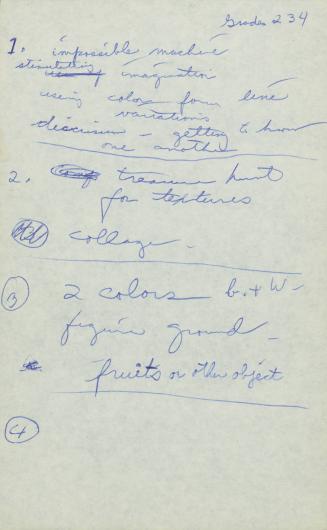 Grades 2 3 4
1. impossible machine
stimulating imagination
using color form line
variations
discussion - getting to know
one another
2. treasure hunt
for textures
collage -
3 2 colors b. + w -
figure ground -
fruits or other object
4